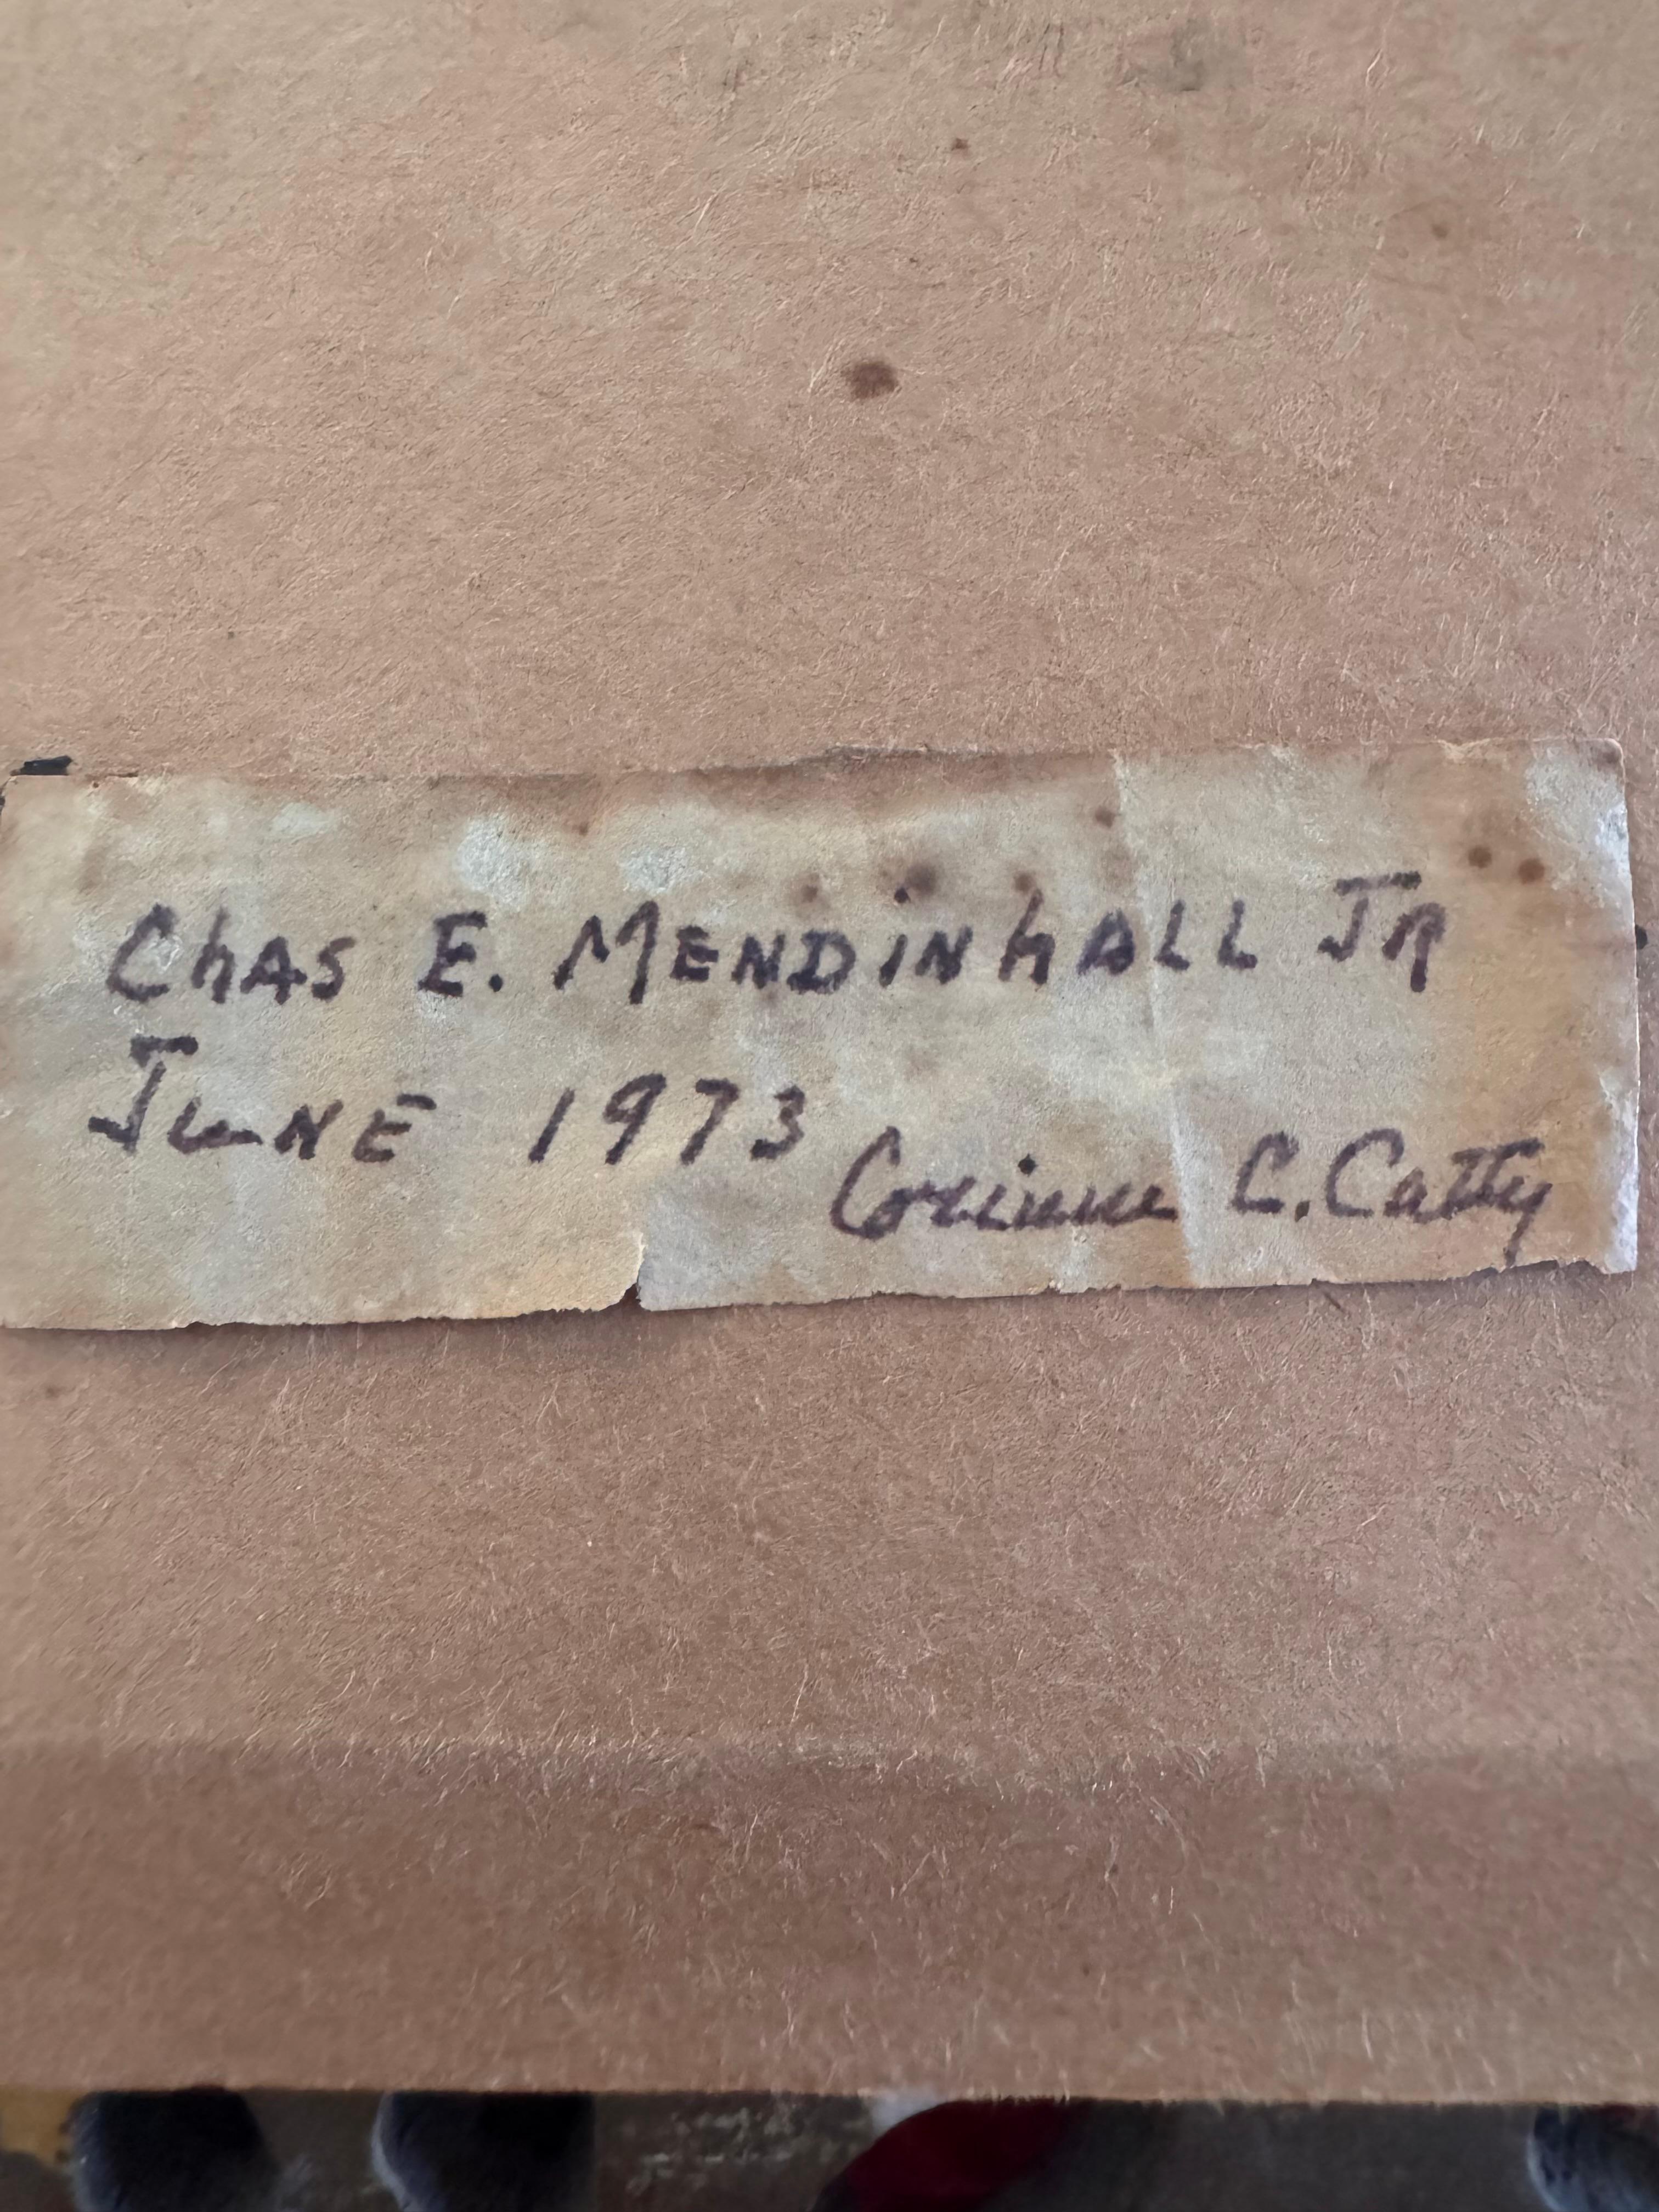 Chas E. MENDINHALL JR
JUNE 1973
Corinne C. Catty